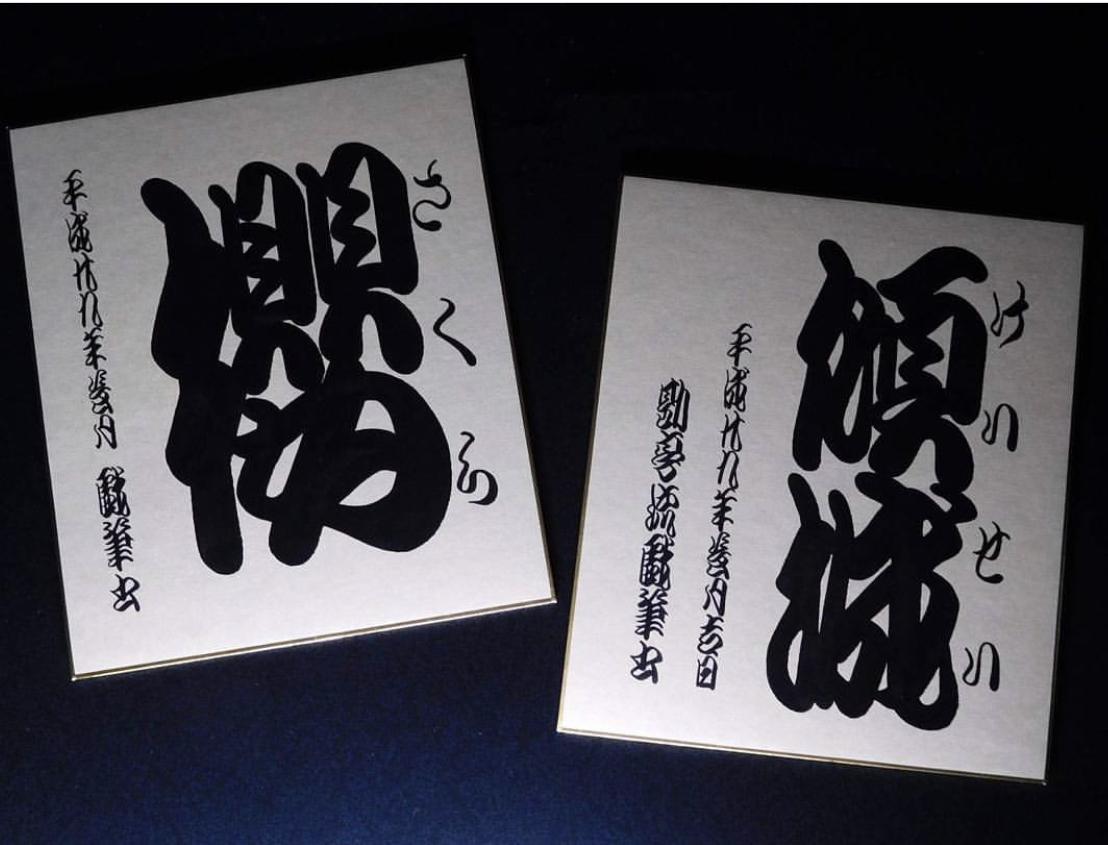 櫻
さくら
平成廿九年葵月 戯筆書
傾城
けいせい
平成廿九年葵月吉日
勘亭流戯筆書